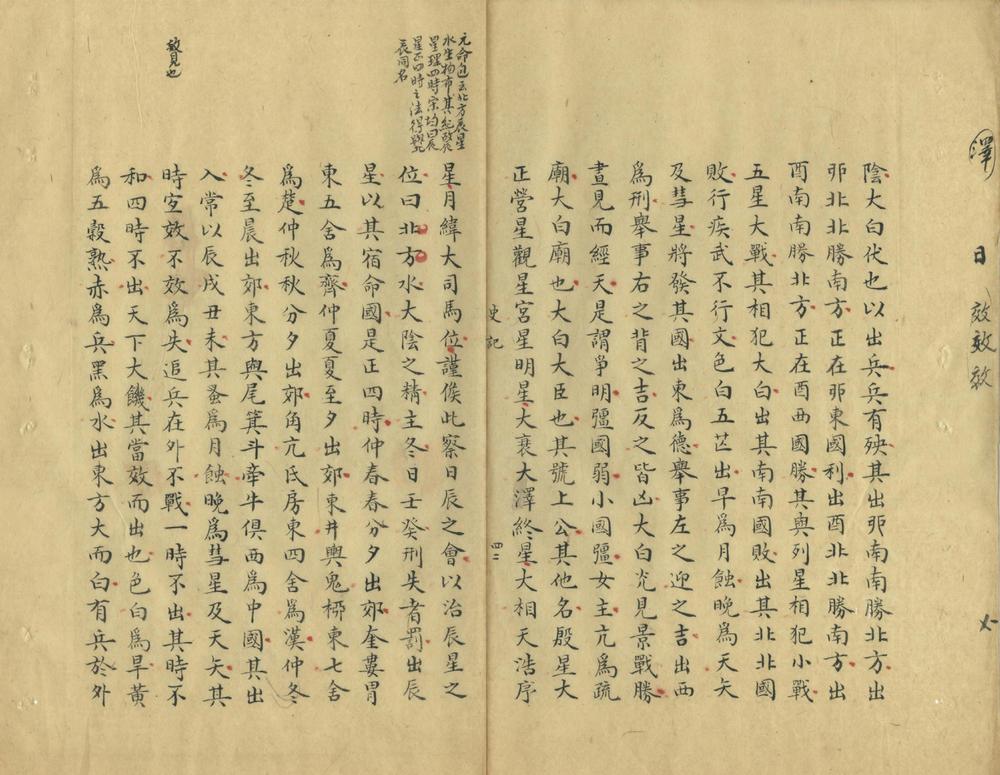 澤
日
効效效
陰大白伏也以出兵兵有殃其出丣南南勝北方出
丣北北勝南方正在丣東國利出酉北北勝南方出
酉南南勝北方正在酉西國勝其與列星相犯小戰
五星大戰其相犯大白出其南南國敗出其北北國
敗行疾武不行文色白五芒出早爲月蝕晚爲天夭
及彗星將發其國出東爲德舉事左之迎之吉出西
爲刑舉事右之背之吉反之皆凶大白光見景戰勝
晝見而經天是謂爭明彊國弱小國彊女主亢爲疏
廟大白廟也大白大臣也其號上公其他名殷星大
正營星觀星宮星明星大衰大澤終星大相天浩序
史記
四二
星月緯大司馬位謹候此察日辰之會以治辰星之
位曰北方水大陰之精主冬日壬癸刑失者罰出辰
星以其宿命國是正四時仲春春分夕出郊奎婁胃
東五舍爲齊仲夏夏至夕出郊東井輿鬼桺東七舍
爲楚仲秋秋分夕出郊角亢氐房東四舍爲漢仲冬
冬至晨出郊東方與尾箕斗牽牛俱西爲中國其出
入常以辰戌丑未其蚤爲月蝕晚爲彗星及天夭其
時宜效不效爲失追兵在外不戰一時不出其時不
和四時不出天下大饑其當效而出也色白爲旱黃
爲五穀熟赤爲兵黑爲水出東方大而白有兵於外
元命包云北方辰星
水生物布其紀故辰
星理四時宋均曰辰
星正四時之法得與北
辰同名
效見也